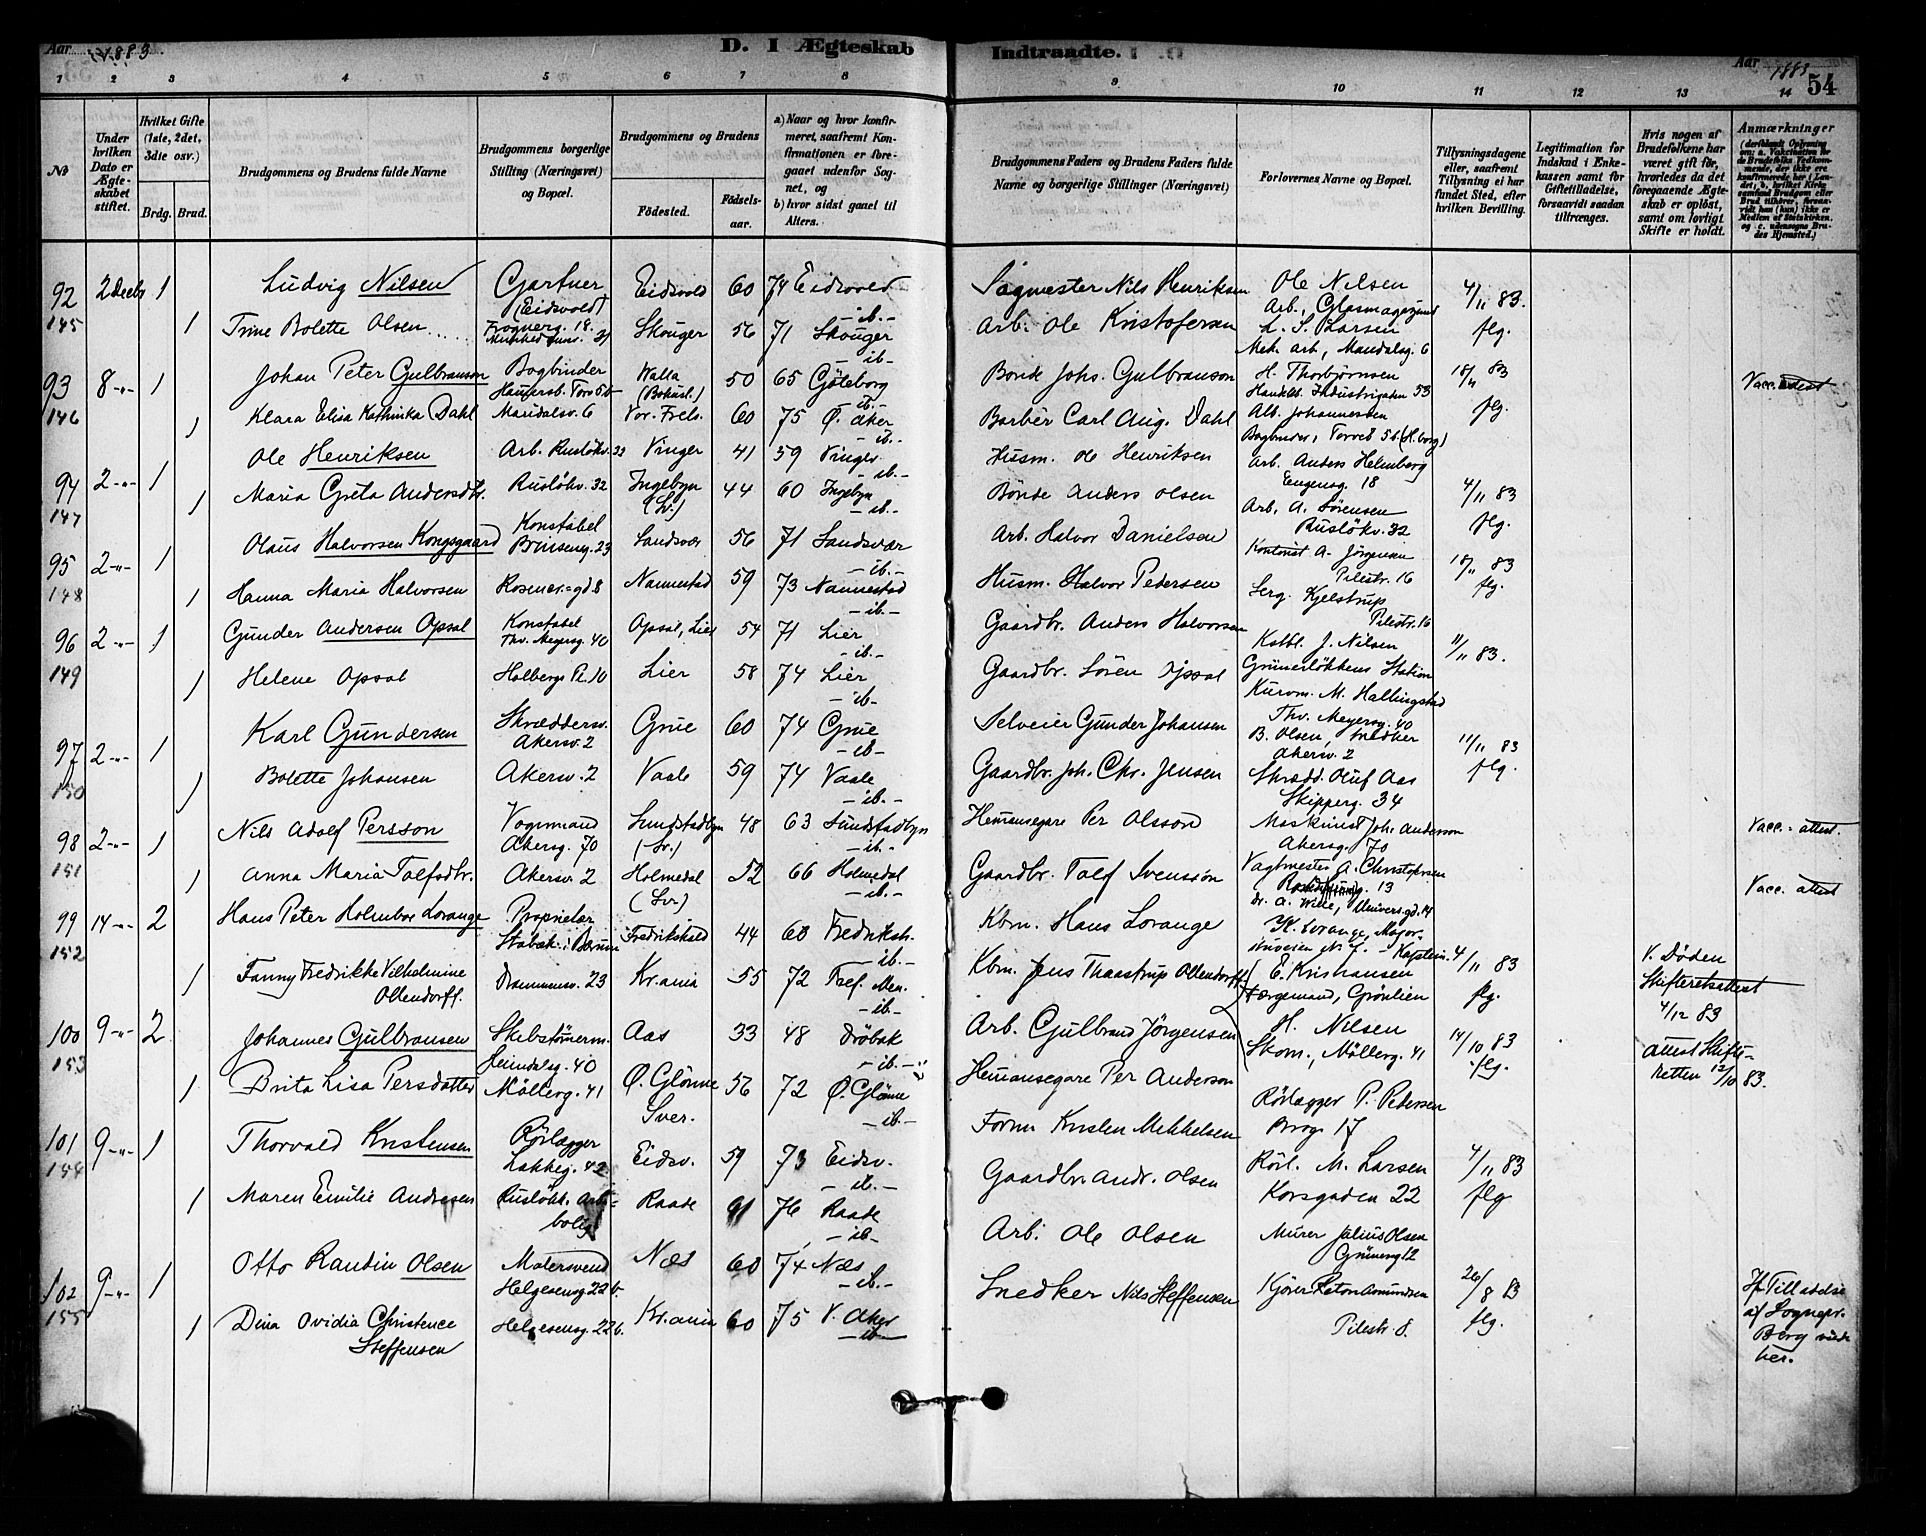 Aar 1883
D. I Ægteskab Indtraadte.
Aar 1883
54
1 2 3 4 5 6 7 8 9 10 11 12 13 14
No
Under hvilken Dato er Ægteskabet stiftet.
Hvilket Gifte (1ste, 2det, 3die osv.)
Brdg. Brud.
Brudgommens og Brudens fulde Navne
Brudgommens borgerlige Stilling (Næringsvei) og Bopæl.
Brudgommens og Brudens
Fødested.
Fødselsaar.
a) Naar og hvor konfirmeret, saafremt Konfirmationen er foregaaet udenfor Sognet, og
b) hvor sidst gaaet til Alters.
Brudgommens Faders og Brudens Faders fulde Navne og borgerlige Stillinger (Næringsvei)
Forlovernes Navne og Bopæl.
Tillysningsdagene eller, saafremt Tillysning ei har fundet Sted, efter hvilken Bevilling.
Legitimation for Indskud i Enkekassen samt for Giftetilladelse, forsaavidt saadan tiltrænges.
Hvis nogen af Brudefolkene har været gift før, hvorledes da det foregaaende Ægteskab er opløst, samt om lovligt Skifte er holdt.
Anmærkninger (deriblandt Oplysning om: a. Vakcination for de Brudefolks Vedkommende, der ikke ere konfirmerede her i Landet; b. hvilket Kirkesamfund Brudgom eller Brud tilhører, forsaavidt han (hun) ikke er Medlem af Statskirken, og c. udensogns Brudes Hjemsted.)
92 2 Decbr 1 Ludvig Nilsen Gartner (Eidsvold) Eidsvold 60 74 Eidsvold -ib.- Sagmester Nils Henriksen Ole Nilsen Arb., Glasmagazinet 4/11 83.
145 1 Trine Bolette Olsen Frognerg. 18. Skouger 56 71 Skouger -ib- Arb. Ole Kristofersen L. S. Larsen Mek. arb., Mandalsg. 6 flg.
93 8-"- 1 Johan Peter Gulbranson Bogbinder Hausersb. Torv 5b Walla (Bohusl.) 50 65 Göteborg -ib.- Bonde Johs. Gulbranson H. Thorbjørnsen Handelsb. Industrigaden 53 18/11 83 Vacc. attest
146 1 Klara Elisa Kathinka Dahl Maridalsv. 6 Vor. Frels. 60 75 Ø. Aker -ib.- Barbér Carl Aug. Dahl Alb. Johannesen Bogbinder, Torvet 5b. (H.borg) flg.
94 2-"- 1 Ole Henriksen Arb. Rusløkv. 32 Vinger 41 59 Vinger -ib.- Husm. Ole Henriksen Arb. Anders Helmberg Eugensg. 18 4/11 83
147 1 Maria Greta Andersdtr. Rusløkv. 32 Ingebyn (Sv.) 44 60 Ingebyn -ib.- Bonde Anders Olsen Arb. A. Sørensen Rusløkv. 32 flg.
95 2-"- 1 Olaus Halvorsen Kongsgaard Konstabel Brinseng. 23 Sandsvær 56 71 Sandsvær -ib.- Arb. Halvor Danielsen Kontorist A. Jörgensen Pilestr. 16 18/11 83
148 1 Hanna Maria Halvorsen Rosencr.=gd. 8 Nannestad 59 73 Nannestad -ib.- Husm. Halvor Pedersen Serg. Kjelstrup Pilestr. 16 flg.
96 2-"- 1 Gunder Andersen Opsal Konstabel Thv. Meyersg. 40 Opsal, Lier 54 71 Lier -ib.- Gaardbr. Anders Halvorsen Kstbl. J. Nilsen Grünerløkkens Station 11/11 83.
149 1 Helene Opsal Holbergs Pl. 10 Lier 58 74 Lier -ib- Gaardbr. Sören Opsal Kurvm. M. Hallingstad Thv. Meyersg. 40
97 2-"- 1 Karl Gundersen Skræddersv. Akersv. 2 Grue 60 74 Grue -ib- Selveier Gunder Johansen B. Olsen, Snedker Akersv. 2 11/11 83
150 1 Bolette Johansen Akersv. 2 Vaale 59 74 Vaale -ib.- Gaardbr. Joh. Chr. Jensen Skrædd. Oluf Aas Skipperg. 34 flg.
98 2-"- 1 Nils Adolf Persson Vognmand Akersg. 70 Sundstadbyn (Sv.) 48 63 Sundstadbyn -ib.- Hemansegare Per Olsson Maskinist Joh. Anderson Akersg. 70 Vacc.-attest.
151 1 Anna Maria Tolfsdtr. Akersv. 2 Holmedal (Sv.) 52 66 Holmedal -ib.- Gaardbr. Tolf Svensson Vagtmester A. Christofersen 13 Vacc. attest
99 14-"- 2 Hans Peter Holmboe Lorange Proprietær Stabæk i Bærum Fredrikshald 44 60 Fredriksh. -ib.- Kbm. Hans Lorange Dr. A. Wille, Univers.gd. 14 H. Lorange, Major. Kaptein. 4/11 83 V. Døden Skifteretsattest 4/12 83
152 1 Fanny Fredrikke Vilhelmine Ollendorff. Drammensv. 23 Kr.ania 55 72 Tref. Men. -ib.- Kbm. Jens Thaastrup Ollendorff flg.
100 9-"- 2 Johannes Gulbransen Skibstømerm. Heimdalsg. 40 Aas 33 48 Drøbak -ib.- Arb. Gulbrand Jörgensen E. Kristiansen Færgemand, Grönlien 14/10 83 Attest Skifteretten 12/10 83.
153 1 Brita Lisa Persdatter Møllerg. 41 Ø. Glänne Sver. 56 72 Ø. Glänne -ib.- Hemansegare Per Anderson H. Nilsen Skom., Möllerg. 41 flg.
101 9-"- 1 Thorvald Kristensen Rörlægger Lakkeg. 42 Eidsv. 59 73 Eidsv. -ib.- Former Kristen Mikkelsen Rörlægger P. Pedersen Brog. 17 4/11 83
154 1 Maren Emilie Andresen Rusløkk. Arb.=bolig Raade 61 76 Raade -ib- Gaardbr. Andr. Olsen Rörl. M. Larsen Korsgaden 22 flg
102 9-"- 1 Otto Randin Olsen Malersvend Helgesensg. 22 b. Næs 60 74 Næs -ib.- Arb. Ole Olsen Murer Julius Olsen Grünersg. 12 26/8 83 Tilladelse af Sognepr. Berg
155 1 Dina Ovidia Christence Steffensen Helgesensg. 22 b. Kr.ania 60 75 V. Aker -ib- Snedker Nils Steffensen Amundsen Pilestr 8. flg. her.